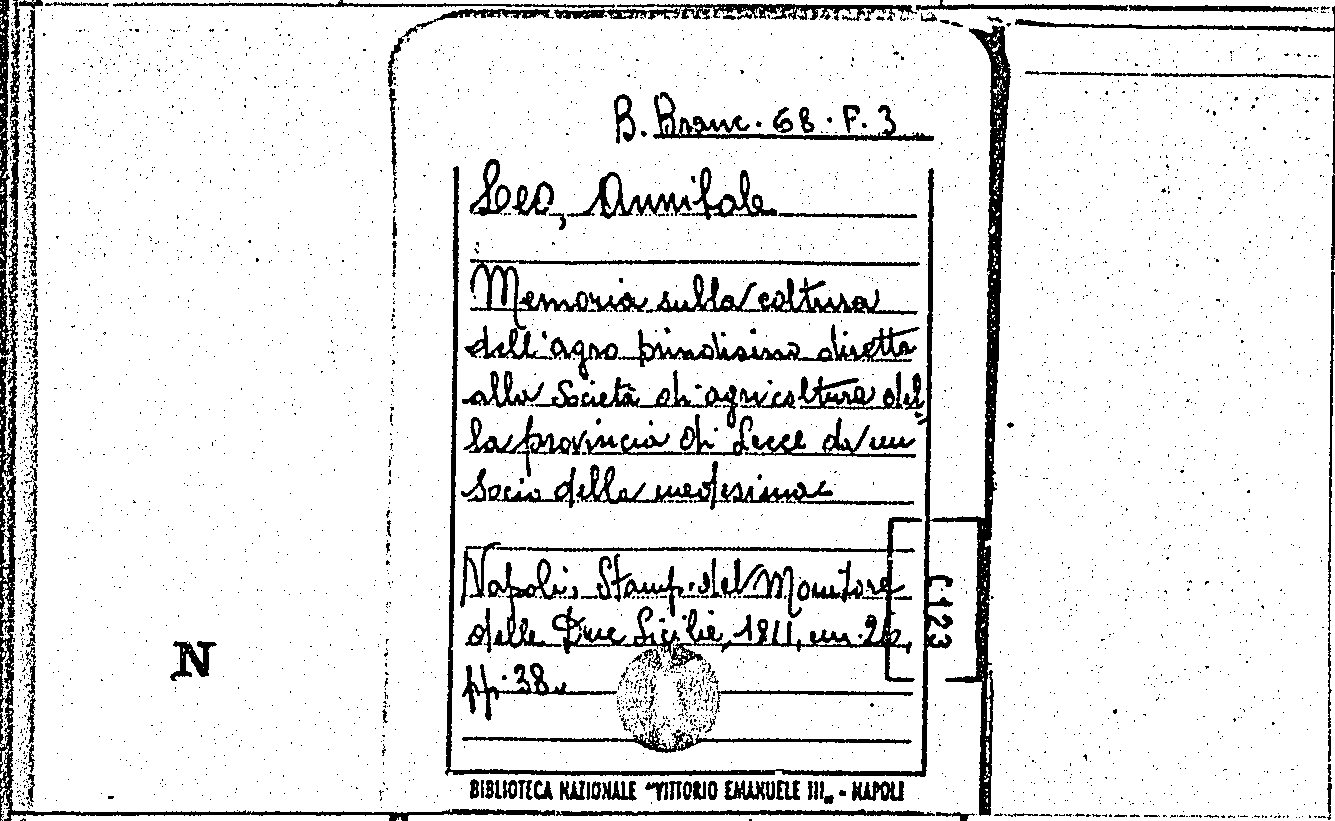 B. Branc. 68. F. 3
Leo, Annibale
Memoria sulla coltura
dell'agro brindisino diretta
alla Società di agricoltura del
la provincia di Lecce da un
socio della medesima
Napoli, Stamp. del Monitore
delle Due Sicilie, 1811, cm. 26,
pp. 38.
C 123
N
BIBLIOTECA NAZIONALE "VITTORIO EMANUELE III„ - NAPOLI